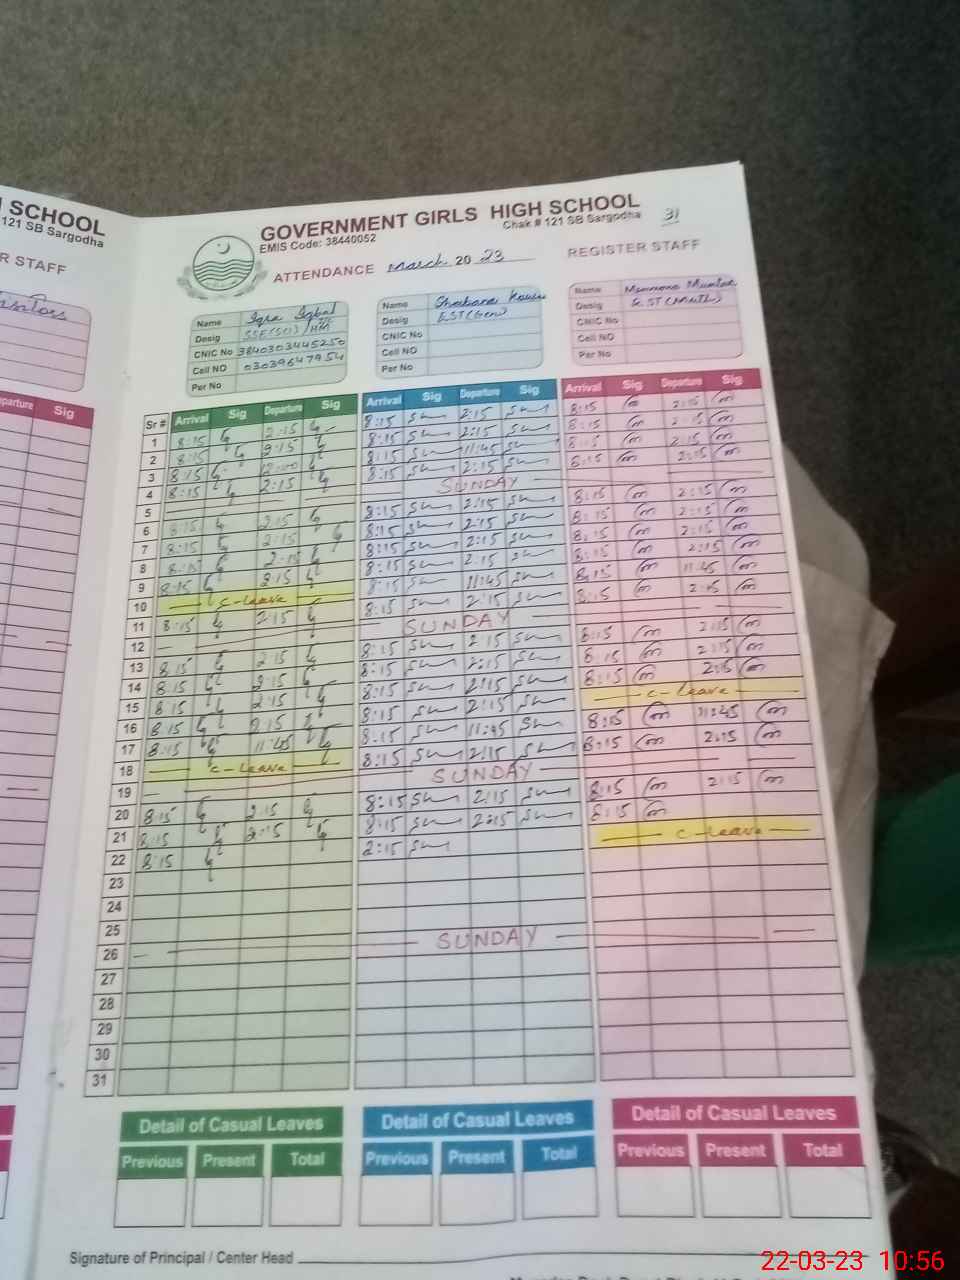 I SCHOOL
121 SB Sargodha
R STAFF
parture Sig
GOVERNMENT GIRLS HIGH SCHOOL
EMIS Code: 38440052 Chak # 121 SB Sargodha
31
ATTENDANCE March 2023 REGISTER STAFF
Name Iqra Iqbal
Desig SSE(Sci) / HM
CNIC No 3840303445250
Cell NO 03039647954
Per No
Name Shabana Kousar
Desig EST(Gen)
CNIC No
Cell NO
Per No
Name Mumtaz
Desig EST
CNIC No
Cell NO
Per No
Sr # Arrival Sig Departure Sig Arrival Sig Departure Sig Arrival Sig Departure Sig
1 8:15 2:15 8:15 2:15 8:15 2:15
2 8:15 2:15 8:15 2:15 8:15 2:15
3 8:15 12:00 8:15 11:45 8:15 2:15
4 8:15 2:15 8:15 2:15 8:15 2:15
5 SUNDAY
6 8:15 2:15 8:15 2:15 8:15 2:15
7 8:15 2:15 8:15 2:15 8:15 2:15
8 8:15 2:15 8:15 2:15 8:15 2:15
9 8:15 2:15 8:15 2:15 8:15 2:15
10 C-Leave 8:15 11:45 8:15 11:45
11 8:15 2:15 8:15 2:15 8:15 2:15
12 SUNDAY
13 8:15 2:15 8:15 2:15 8:15 2:15
14 8:15 2:15 8:15 2:15 8:15 2:15
15 8:15 2:15 8:15 2:15 8:15 2:15
16 8:15 2:15 8:15 2:15 C-Leave
17 8:15 11:45 8:15 11:45 8:15 11:45
18 C-Leave 8:15 2:15 8:15 2:15
19 SUNDAY
20 8:15 2:15 8:15 2:15 8:15 2:15
21 8:15 2:15 8:15 2:15 8:15
22 8:15 2:15 C-Leave
23
24
25
26 SUNDAY
27
28
29
30
31
Detail of Casual Leaves Detail of Casual Leaves Detail of Casual Leaves
Previous Present Total Previous Present Total Previous Present Total
Signature of Principal / Center Head
22-03-23 10:56